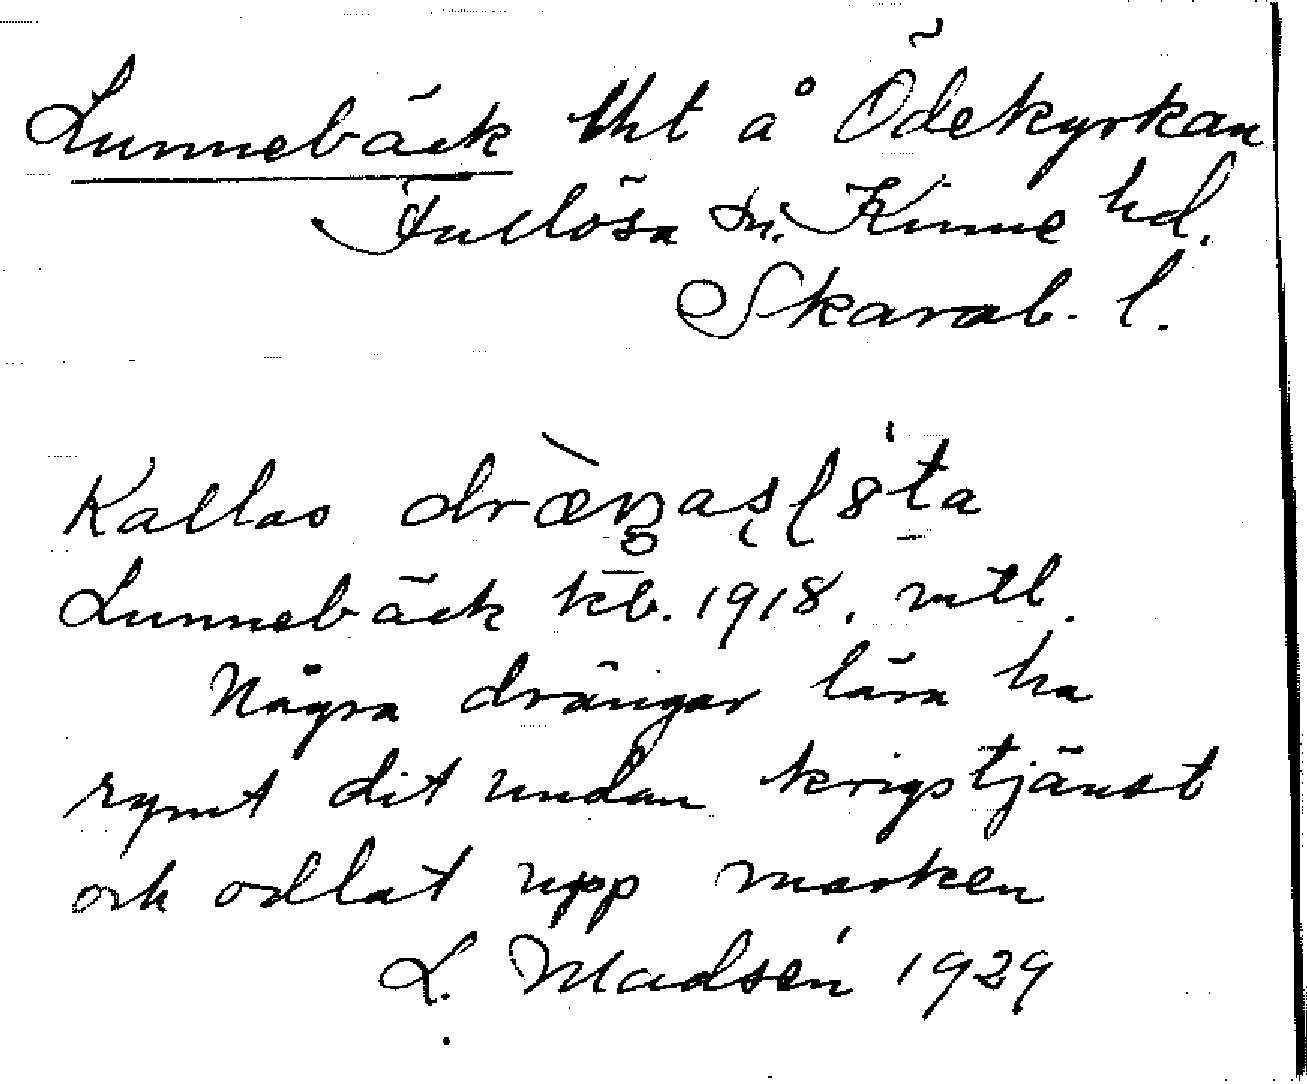 Lunnebäck tht å Ödekyrkan
Fullösa sn. Kinne hd.
Skarab. l.
Kallas
Lunnebäck kb. 1918. mtl.
Några drängar lära ha
rymt dit undan krigstjänst
och odlat upp marken
L. Madsén 1929